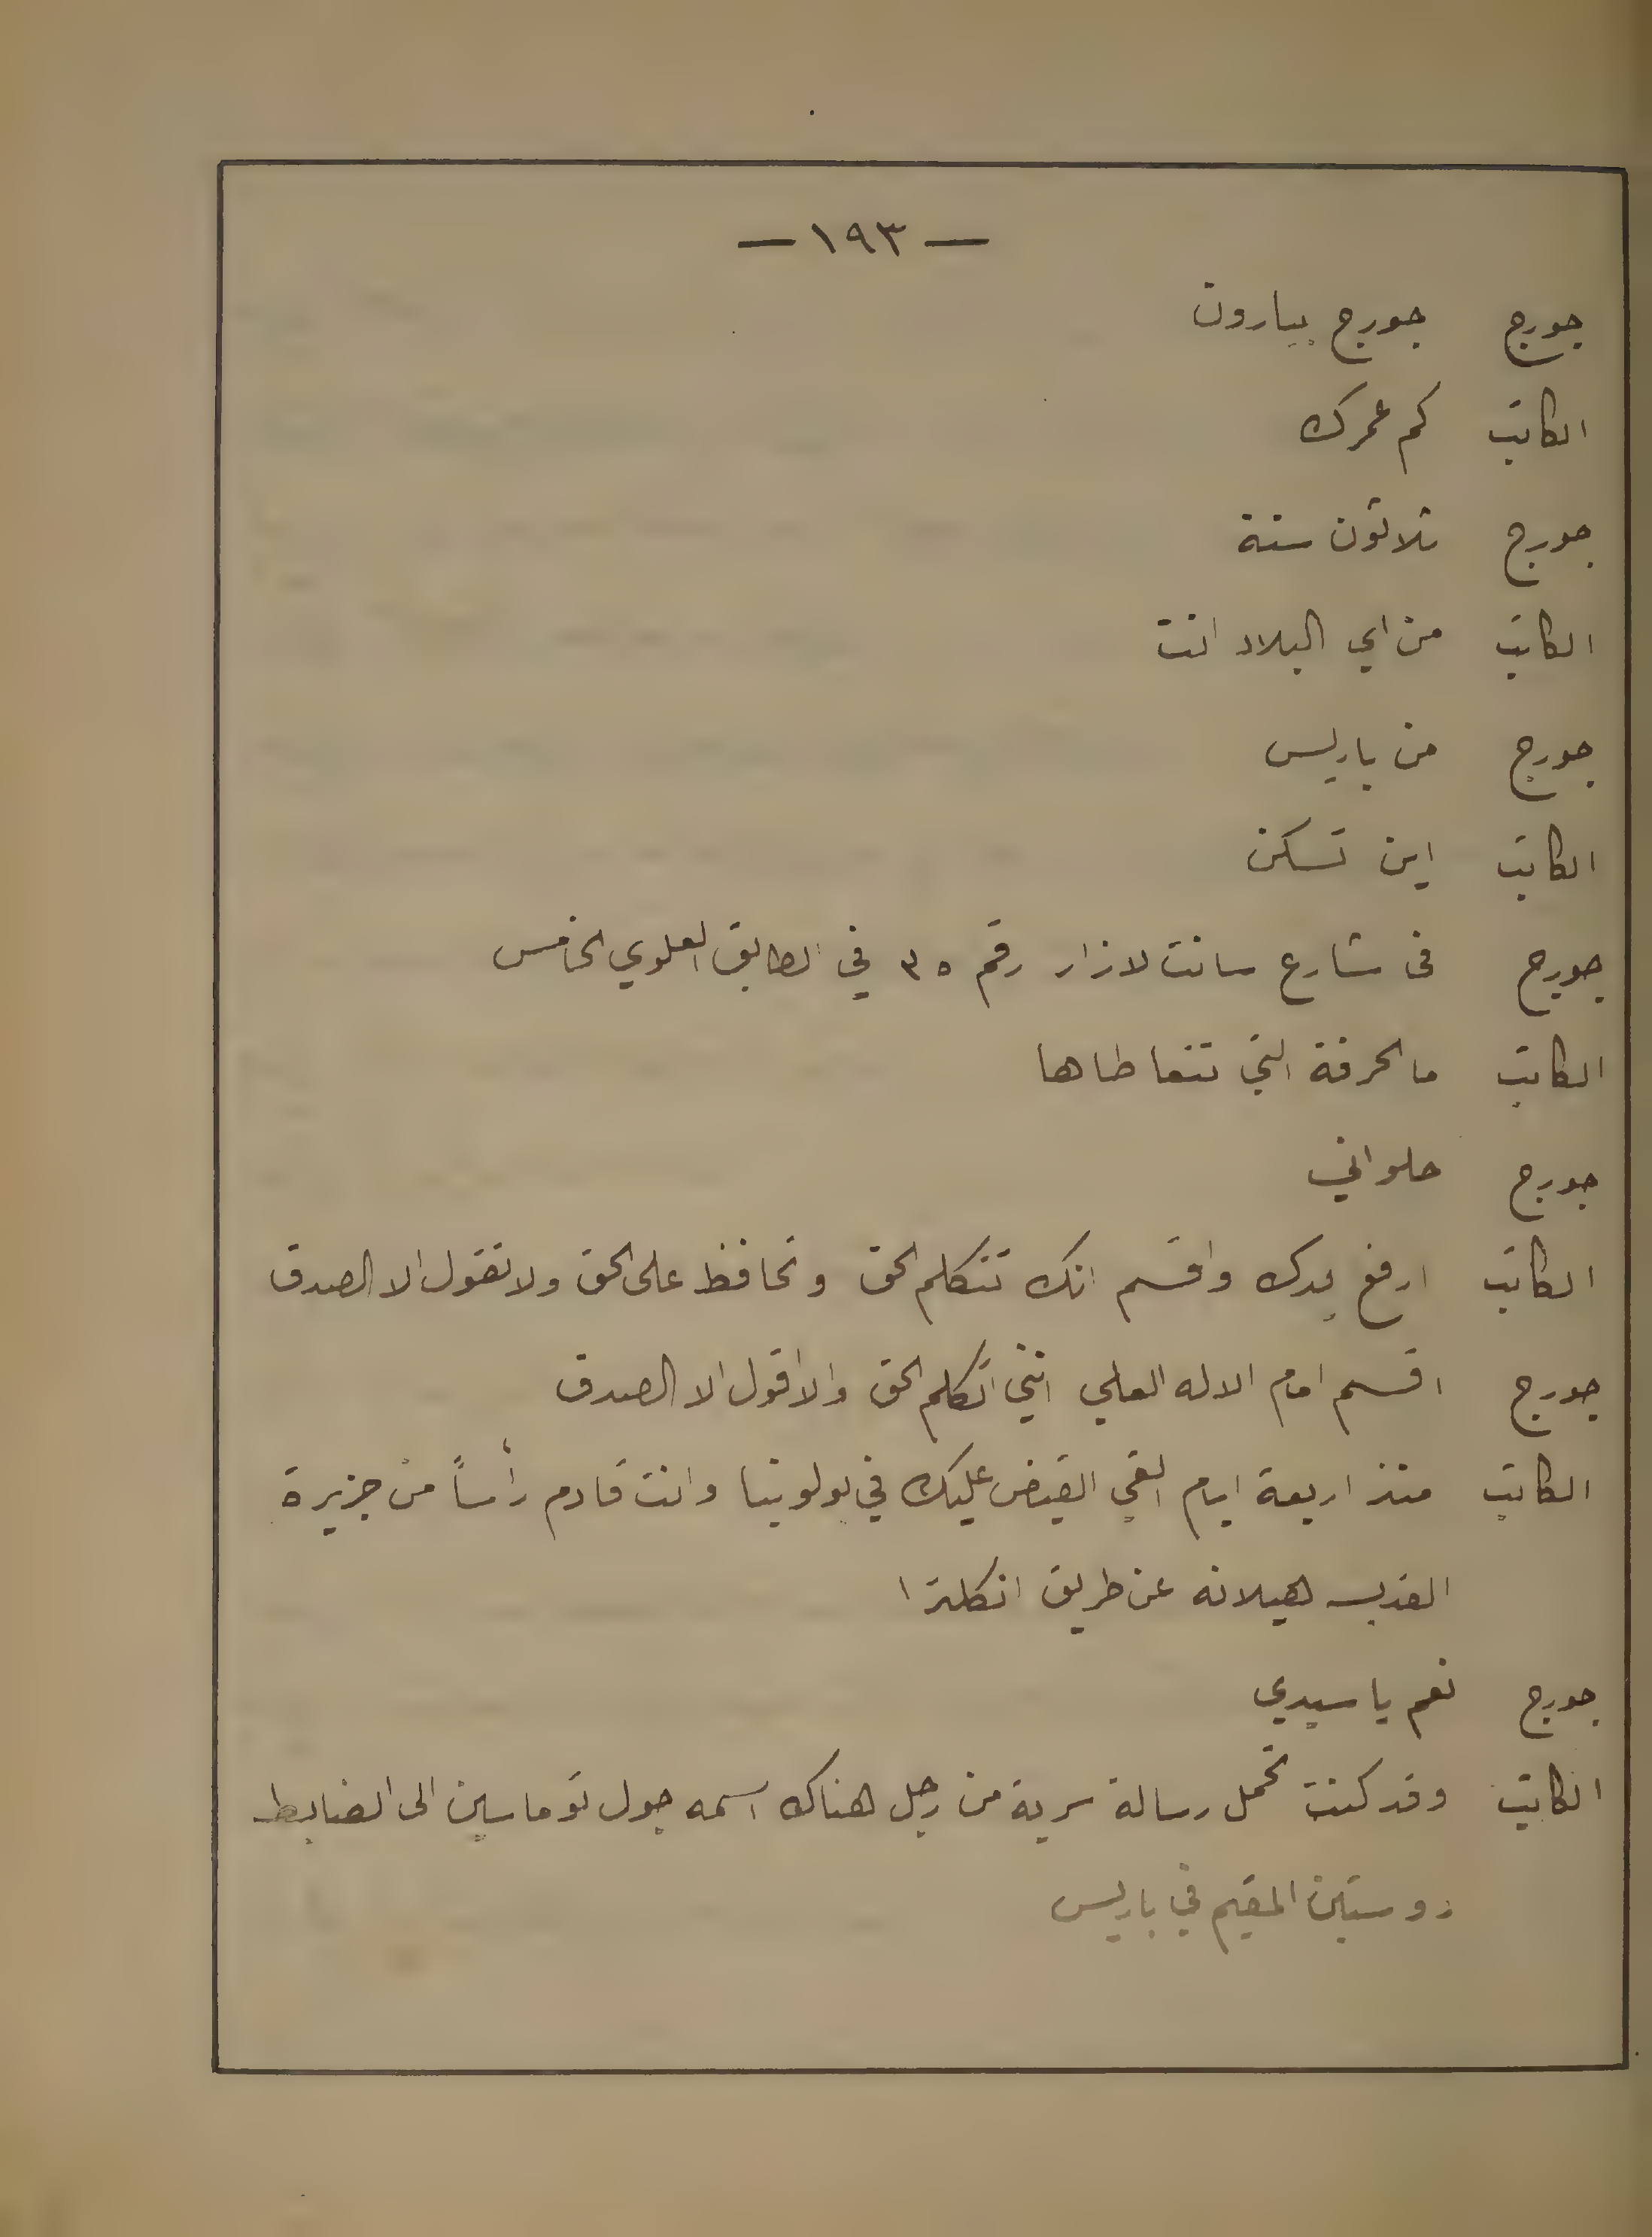 — ١٩٣ —
جورج جورج بيارون
الكاتب كم عمرك
جورج ثلاثون سنة
الكاتب من اي البلاد انت
جورج من باريس
الكاتب اين تسكن
جورج فى شارع سانت لازار رقم ٣٥ في الطابق العلوي الخامس
الكاتب ما الحرفة التي تتعاطاها
جورج حلواني
الكاتب ارفع يدك واقسم انك تتكلم الحق وتحافظ على الحق ولا تقول الا الصدق
جورج اقسم امام الاله العلي انني اتكلم الحق ولا اقول الا الصدق
الكاتب منذ اربعة ايام القي القبض عليك في بولونيا وانت قادم رأساً من جزيرة
القديسه هيلانه عن طريق انكلترا
جورج نعم يا سيدي
الكاتب وقد كنت تحمل رسالة سرية من رجل هناك اسمه جول توماسين الى الضابط
روستين المقيم في باريس